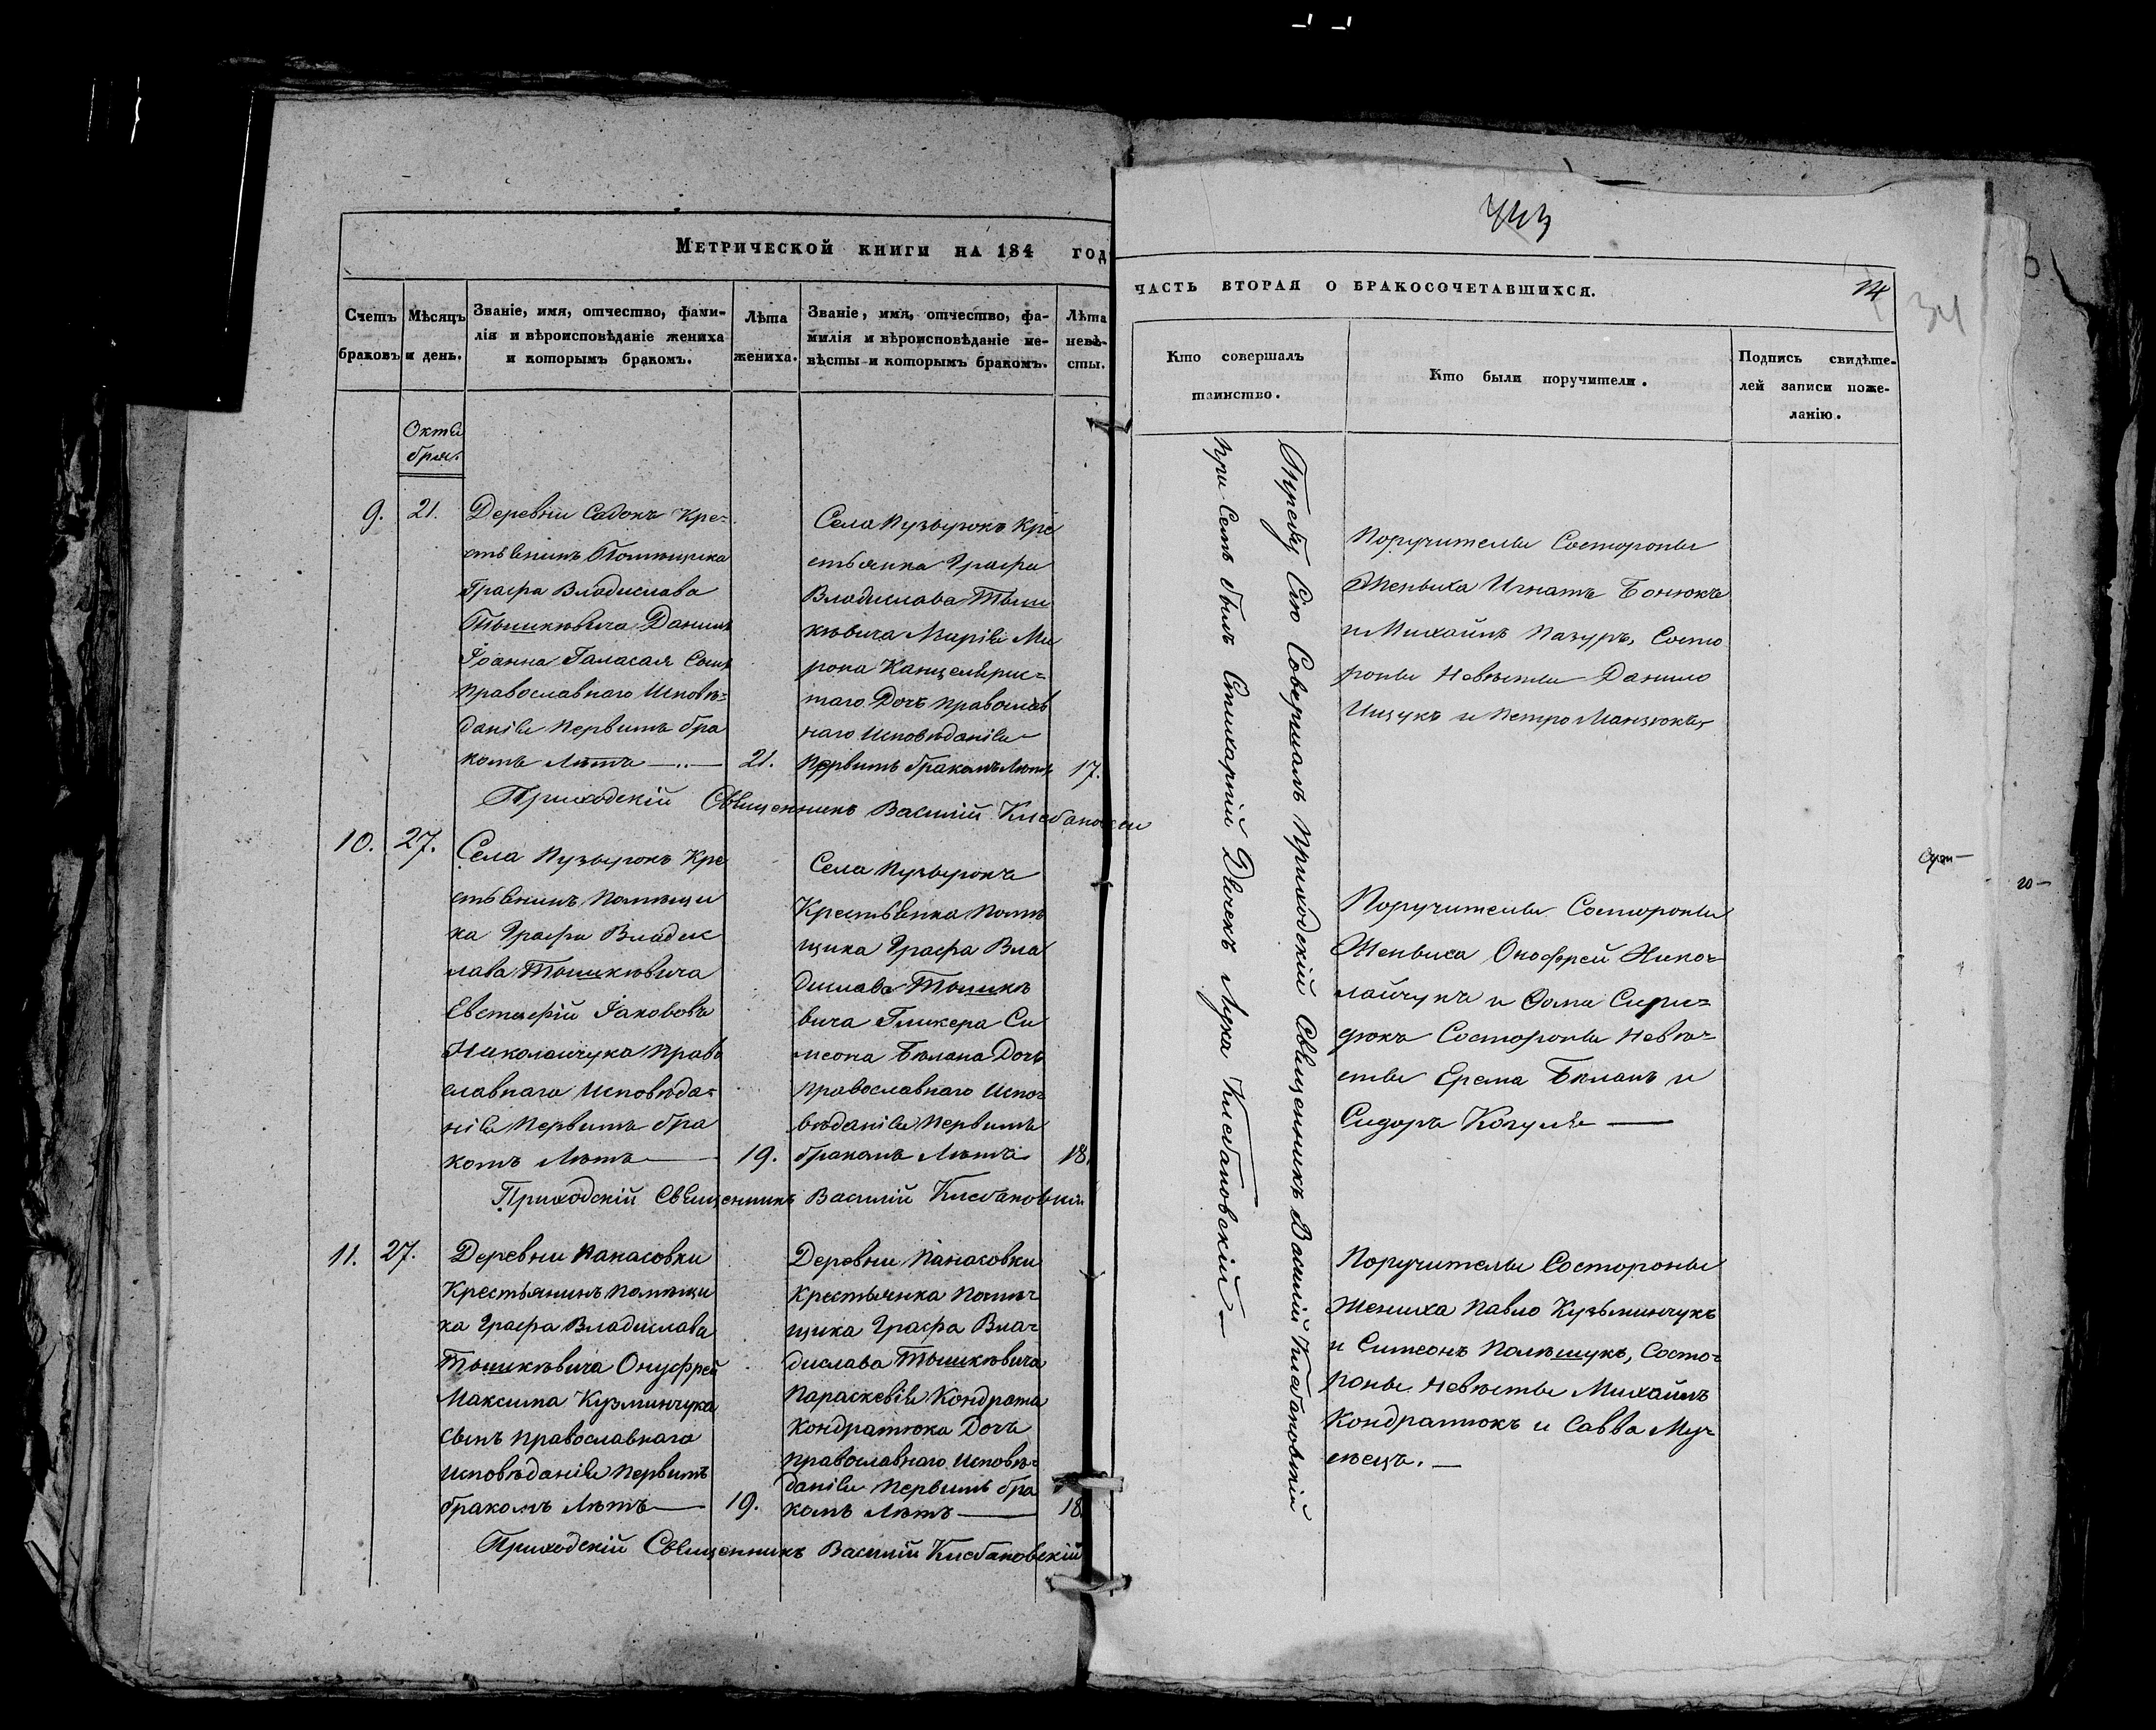 МЕТРИЧЕСКОЙ КНИГИ НА 184 ГОД
Счетъ браковъ
Мѣсяцъ и день.
Званіе, имя, отчество, фами-
лія и вѣроисповѣданіе жениха
и которымъ бракомъ.
Лѣта
жениха.
Званіе, имя, отчество, фа-
милія и вѣроисповѣданіе не-
вѣсты и которымъ бракомъ.
Лѣта
невѣ-
сты.
Октя
бря.
9.
21.
Деревни Садокъ Кре-
стьянинъ Помѣщика
Графа Владислава
Тышкѣвича Даниилъ
Іоанна Галасая Сынъ
православнаго Исповѣ-
данія первымъ бра
комъ Лѣтъ —..—
21.
Села Пузырокъ Кре
стьянка Графа
Владислава Тыш
кѣвича Марія Ми
рона Канцелярис-
таго Дочь православ
наго Исповѣданія
первымъ бракомъ Лѣтъ
17.
Приходскій Священникъ Василій Клебановскій
10.
27.
Села Пузырокъ Кре
стьянинъ Помѣщи
ка Графа Владис
лава Тышкѣвича
Евстафій Іакововъ
Николайчука право
славнаго Исповѣда-
нія первымъ бра
комъ Лѣтъ —
19.
Села Пузырокъ
Крестьянка Помѣ
щика Графа Вла
дислава Тышкѣ
вича Гликера Си
меона Бѣлана Дочь
православнаго Испо-
вѣданія первымъ
бракомъ Лѣтъ
18.
Приходскій Священникъ Василій Клебановскій
11.
27.
Деревни Панасовки
Крестьянинъ Помѣщи
ка Графа Владислава
Тышкѣвича Онуфрей
Максима Кузминчука
сынъ православнаго
исповѣданія первымъ
бракомъ Лѣтъ —
19.
Деревни Панасовки
крестьянка Помѣ-
щика Графа Вла-
дислава Тышкѣвича
Параскевія Кондрата
Кондратюка Дочь
православнаго Исповѣ-
данія первымъ бра
комъ Лѣтъ —
18.
Приходскій Священникъ Василій Клебановскій
ЧАСТЬ ВТОРАЯ О БРАКОСОЧЕТАВШИХСЯ.
14
34
Кто совершалъ
таинство.
Кто были поручители.
Подпись свидѣте-
лей записи поже-
ланію.
Требу Сію Совершалъ приходскій Священникъ Василій Клебановскій
при Семъ былъ Стихарній Дячекъ Лука Клебановскій —
Поручители Состороны
Жениха Игнатъ Бонюкъ
и Михайлъ Мазуръ, Состо
роны Невѣсты Данило
Ищукъ и Петро Манзюкъ
Поручители Состороны
Жениха Онофрей Нико-
лайчукъ и Фома Сири-
дюкъ Состороны Невѣ-
сты Ерема Бѣланъ и
Сидоръ Когуля —
Поручители Состороны
Жениха Павло Кузьминчукъ
и Симеонъ Полѣшукъ, Состо-
роны Невѣсты Михайлъ
Кондратюкъ и Савва